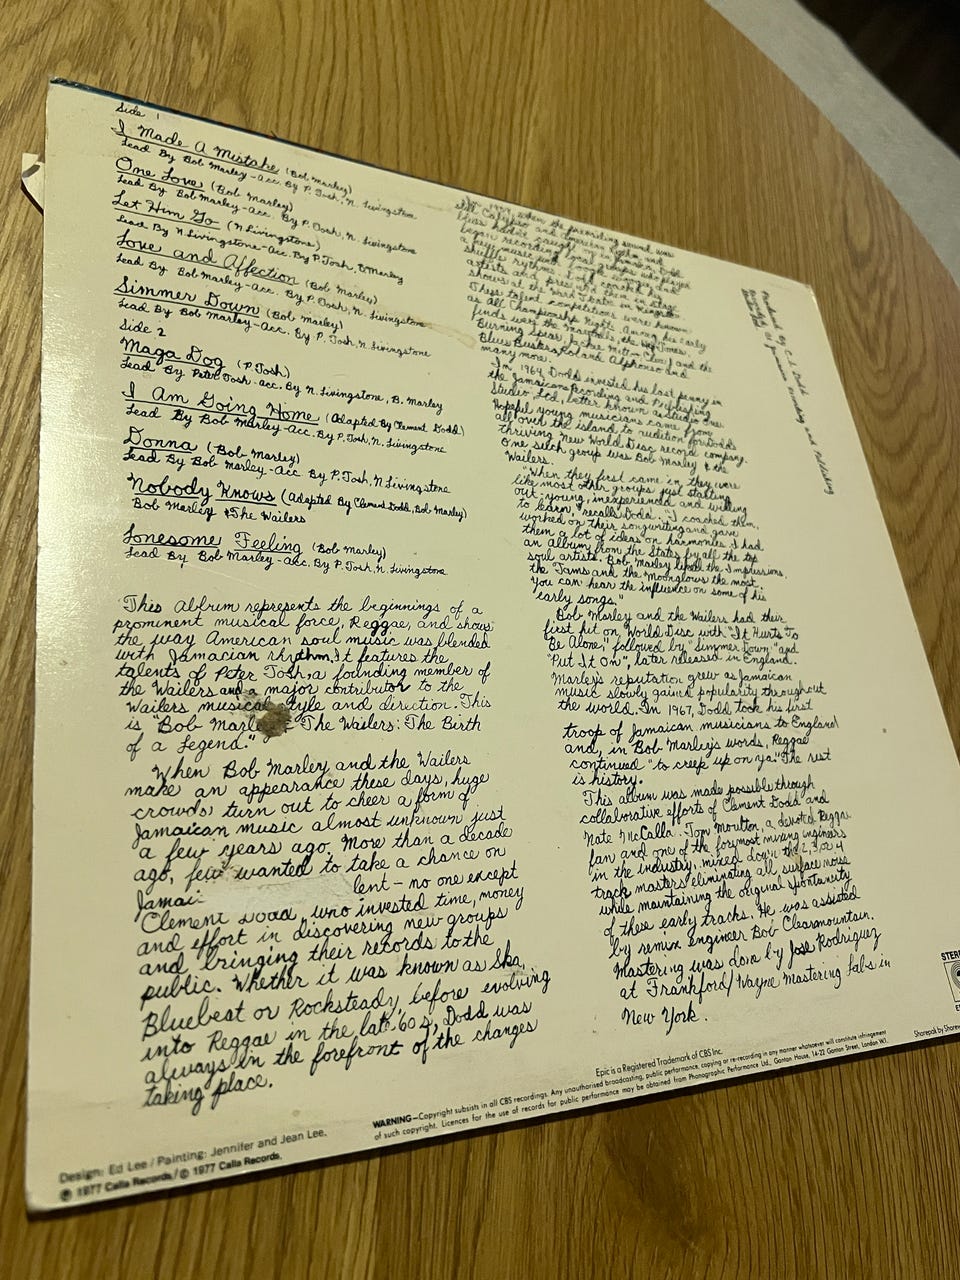 Side 1
I Made A Mistake (Bob Marley)
Lead By Bob Marley-Acc. By P. Tosh, N. Livingstone
One Love (Bob Marley)
Lead By Bob Marley-Acc. By P. Tosh, N. Livingstone
Let Him Go (N. Livingstone)
Lead By N. Livingstone-Acc. By P. Tosh, B. Marley
Love and Affection (Bob Marley)
Lead By Bob Marley-Acc. By P. Tosh, N. Livingstone
Simmer Down (Bob Marley)
Lead By Bob Marley-Acc. By P. Tosh, N. Livingstone
Side 2
Maga Dog (P. Tosh)
Lead By Peter Tosh-acc. By N. Livingstone, B. Marley
I Am Going Home (Adapted By Clement Dodd)
Lead By Bob Marley-Acc. By P. Tosh, N. Livingstone
Donna (Bob Marley)
Lead By Bob Marley-Acc. By P. Tosh N. Livingstone
Nobody Knows (Adapted By Clement Dodd, Bob Marley)
Bob Marley & The Wailers
Lonesome Feeling (Bob Marley)
Lead By Bob Marley-Acc. By P. Tosh, N. Livingstone
This album represents the beginnings of a
prominent musical force, Reggae, and shows
the way American soul music was blended
with Jamacian rhythm. It features the
talents of Peter Tosh, a founding member of
the Wailers and a major contributor to the
Wailers musical style and direction. This
is "Bob Marley The Wailers: The Birth
of a Legend."
When Bob Marley and the Wailers
make an appearance these days, huge
crowds turn out to cheer a form of
Jamaican music almost unknown just
a few years ago. More than a decade
ago, few wanted to take a chance on
Jamai lent - no one except
Clement Dodd, who invested time, money
and effort in discovering new groups
and bringing their records to the
public. Whether it was known as Ska,
Bluebeat or Rocksteady, before evolving
into Reggae in the late 60s, Dodd was
always in the forefront of the changes
taking place.
when the prevailing sound was
still Calypso and American rhythm and
blues hadn't caught on in Jamaica, Dodd
began recording local groups who played
shuffle rythms. Coaching his
artists and presenting them in stage
shows at the Ward Theatre in Kingston.
These talent competitions were known
as All Championship Nights. Among his early
finds were the Maytals, the Jones,
Burning Spear, Jackie Mitto-Chew and the
Blues Busters, Roland Alphonso and
many more.
In 1964, Dodd invested his last penny in
the Jamaican Recording and Publishing
Studio Ltd., better known as Studio One.
Hopeful young musicians came from
all over the island to audition for Dodd's
thriving New World Disc record company.
One such group was Bob Marley & the
Wailers.
"When they first came in they were
like most other groups just starting
out - young, inexperienced and willing
to learn," recalls Dodd. "I coached them,
worked on their songwriting and gave
them a lot of ideas on harmonies. I had
an album from the States by all the top
soul artists. Bob Marley liked the Impressions,
the Tams and the Moonglows the most.
You can hear the influence on some of his
early songs."
Bob Marley and the Wailers had their
first hit on World Disc with "It Hurts To
Be Alone," followed by "Simmer Down," and
"Put It On", later released in England.
Marley's reputation grew as Jamaican
music slowly gained popularity throughout
the world. In 1967, Dodd took his first
troop of Jamaican musicians to England
and, in Bob Marley's words, Reggae
continued "to creep up on ya." The rest
is history.
This album was made possible through
collaborative efforts of Clement Dodd and
Nate McCalla. Tom Moulton, a devoted Reggae
fan and one of the foremost mixing engineers
in the industry, mixed down the 2, 3, or 4
track masters eliminating all surface noise
while maintaining the original spontaneity
of these early tracks. He was assisted
by remix engineer Bob Clearmountain.
Mastering was done by José Rodriguez
at Frankford/Wayne Mastering Labs in
New York.
Produced By C.S. Dodd
Jamaican Recording and Publishing
Epic is a Registered Trademark of CBS Inc.
WARNING—Copyright subsists in all CBS recordings. Any unauthorised broadcasting, public performance, copying or re-recording in any manner whatsoever will constitute infringement
of such copyright. Licences for the use of records for public performance may be obtained from Phonographic Performance Ltd., Ganton House, 14-22 Ganton Street, London W1.
Design: Ed Lee / Painting: Jennifer and Jean Lee.
℗ 1977 Calla Records / © 1977 Calla Records.
STER
Sharepak by Sharew